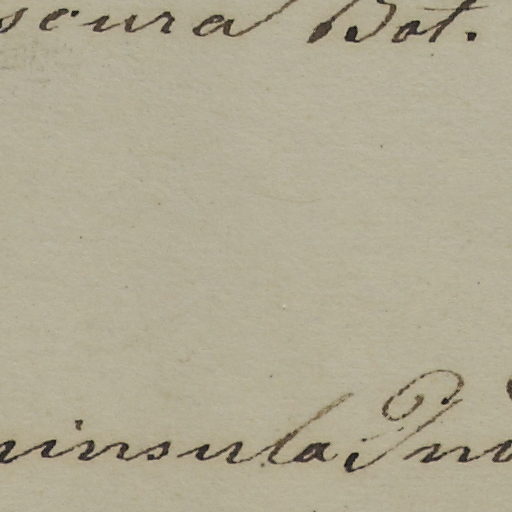 scura Bot.
ninsula Ind